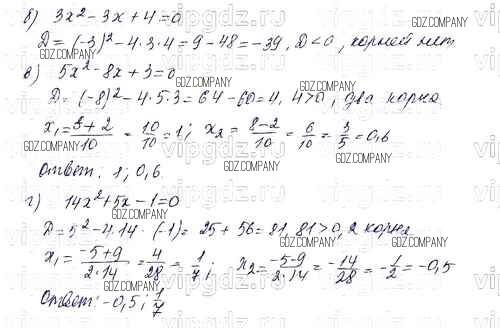 б) 3x² - 3x + 4 = 0
D = (-3)² - 4·3·4 = 9 - 48 = -39, D < 0, корней нет
в) 5x² - 8x + 3 = 0
D = (-8)² - 4·5·3 = 64 - 60 = 4, 4 > 0, два корня.
x₁ = 8+2/10 = 10/10 = 1; x₂ = 8-2/10 = 6/10 = 3/5 = 0,6
Ответ: 1; 0,6.
г) 14x² + 5x - 1 = 0
D = 5² - 4·14·(-1) = 25 + 56 = 81, 81 > 0, 2 корня
x₁ = -5+9/2·14 = 4/28 = 1/7; x₂ = -5-9/2·14 = -14/28 = -1/2 = -0,5
Ответ: -0,5; 1/7